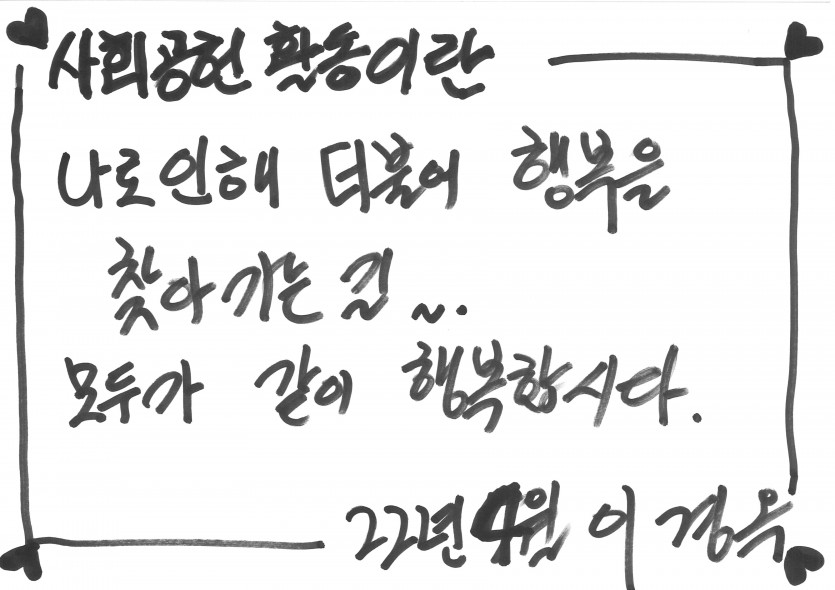 사회공헌 활동이란
나로인해 더불어 행복을
찾아가는길~.
모두가 같이 행복합시다.
22년 4월 이경옥